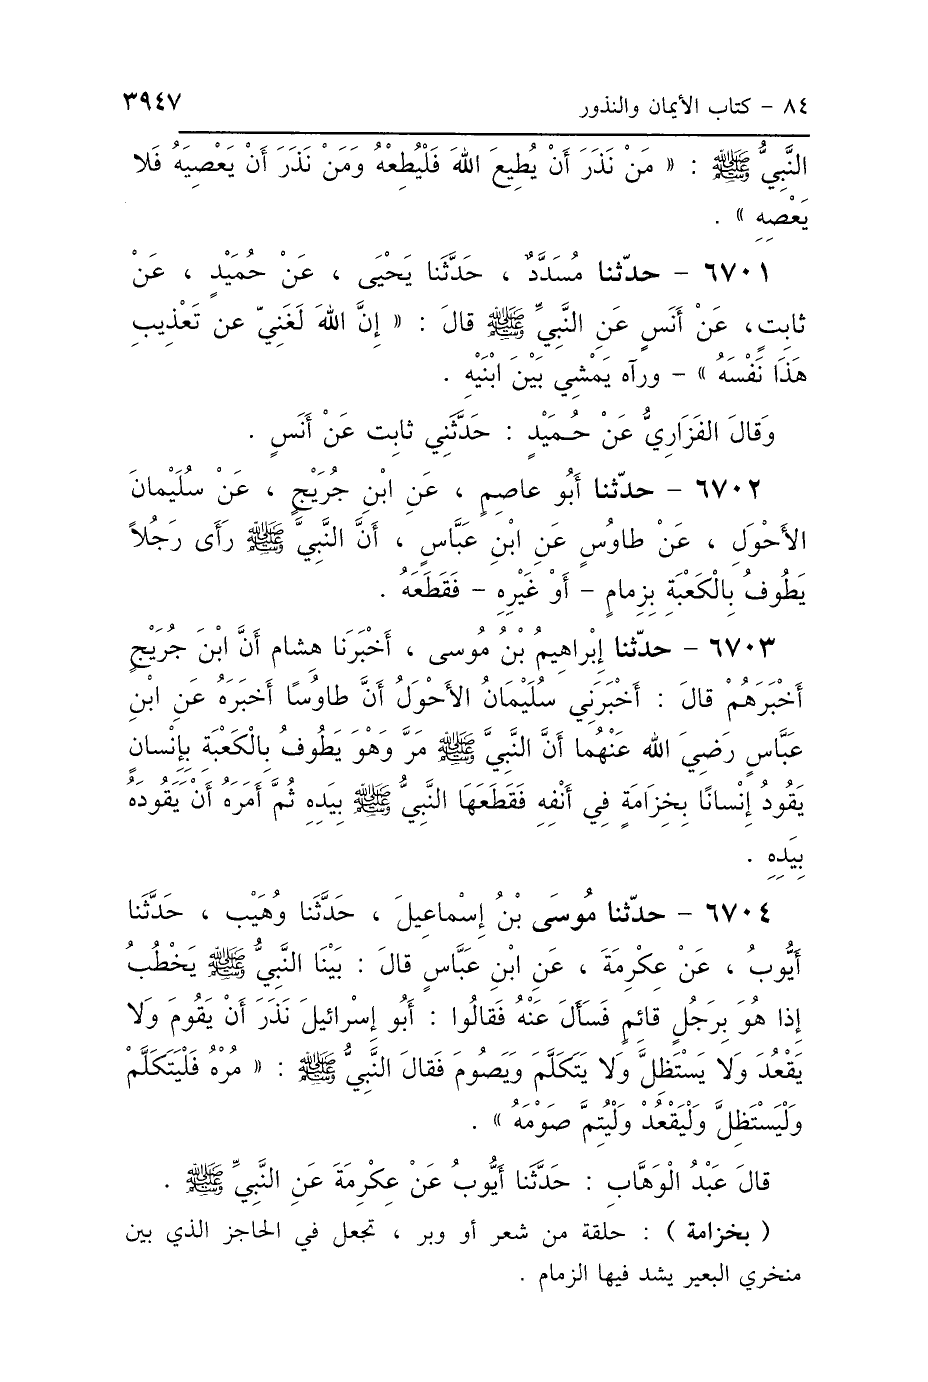 ٨٤ - كتاب الأيمان والنذور ٣٩٤٧
النَّبِيُّ ﷺ : « مَنْ نَذَرَ أَنْ يُطِيعَ اللهَ فَلْيُطِعْهُ وَمَنْ نَذَرَ أَنْ يَعْصِيَهُ فَلا
يَعْصِهِ » .
٦٧٠١ - حدّثنا مُسَدَّدٌ ، حَدَّثَنا يَحْيَى ، عَنْ حُمَيْدٍ ، عَنْ
ثابِتٍ، عَنْ أَنَسٍ عَنِ النَّبِيِّ ﷺ قالَ : « إِنَّ اللهَ لَغَنِيّ عن تَعْذِيبِ
هَذَا نَفْسَهُ » - ورآه يَمْشِي بَيْنَ ابْنَيْهِ .
وَقالَ الفَزَارِيُّ عَنْ حُمَيْدٍ : حَدَّثَنِي ثابِت عَنْ أَنَسٍ .
٦٧٠٢ - حدّثنا أَبُو عاصِمٍ ، عَنِ ابْنِ جُرَيْجٍ ، عَنْ سُلَيْمانَ
الأَحْوَلِ ، عَنْ طاوُسٍ عَنِ ابْنِ عَبَّاسٍ ، أَنَّ النَّبِيَّ ﷺ رَأَى رَجُلاً
يَطُوفُ بِالْكَعْبَةِ بِزِمامٍ - أَوْ غَيْرِهِ - فَقَطَعَهُ .
٦٧٠٣ - حدّثنا إِبْراهِيمُ بْنُ مُوسى ، أَخْبَرَنَا هِشام أَنَّ ابْنَ جُرَيْجٍ
أَخْبَرَهُمْ قالَ : أَخْبَرَنِي سُلَيْمَانُ الأَحْوَلُ أَنَّ طاوُسًا أَخبَرَهُ عَنِ ابْنِ
عَبَّاسٍ رَضِيَ الله عَنْهُما أَنَّ النَّبِيَّ ﷺ مَرَّ وَهْوَ يَطُوفُ بِالْكَعْبَةِ بِإِنْسانٍ
يَقُودُ إِنْسانًا بِخِزَامَةٍ فِي أَنْفِهِ فَقَطَعَهَا النَّبِيُّ ﷺ بِيَدِهِ ثُمَّ أَمَرَهُ أَنْ يَقُودَهُ
بِيَدِهِ .
٦٧٠٤ - حدّثنا مُوسَى بْنُ إِسْماعِيلَ ، حَدَّثَنا وُهَيْب ، حَدَّثَنا
أَيُّوبُ ، عَنْ عِكْرِمَةَ ، عَنِ ابْنِ عَبَّاسٍ قالَ : بَيْنَا النَّبِيُّ ﷺ يَخْطُبُ
إِذا هُوَ بِرَجُلٍ قائِمٍ فَسَأَلَ عَنْهُ فَقالُوا : أَبُو إِسْرائِيلَ نَذَرَ أَنْ يَقُومَ وَلا
يَقْعُدَ وَلا يَسْتَظِلَّ وَلا يَتَكَلَّمَ وَيَصُومَ فَقالَ النَّبِيُّ ﷺ : « مُرْهُ فَلْيَتَكَلَّمْ
وَلْيَسْتَظِلَّ وَلْيَقْعُدْ وَلْيُتِمَّ صَوْمَهُ » .
قالَ عَبْدُ الْوَهَّابِ : حَدَّثَنا أَيُّوبُ عَنْ عِكْرِمَةَ عَنِ النَّبِيِّ ﷺ .
( بخزامة ) : حلقة من شعر أو وبر ، تجعل في الحاجز الذي بين
منخري البعير يشد فيها الزمام .